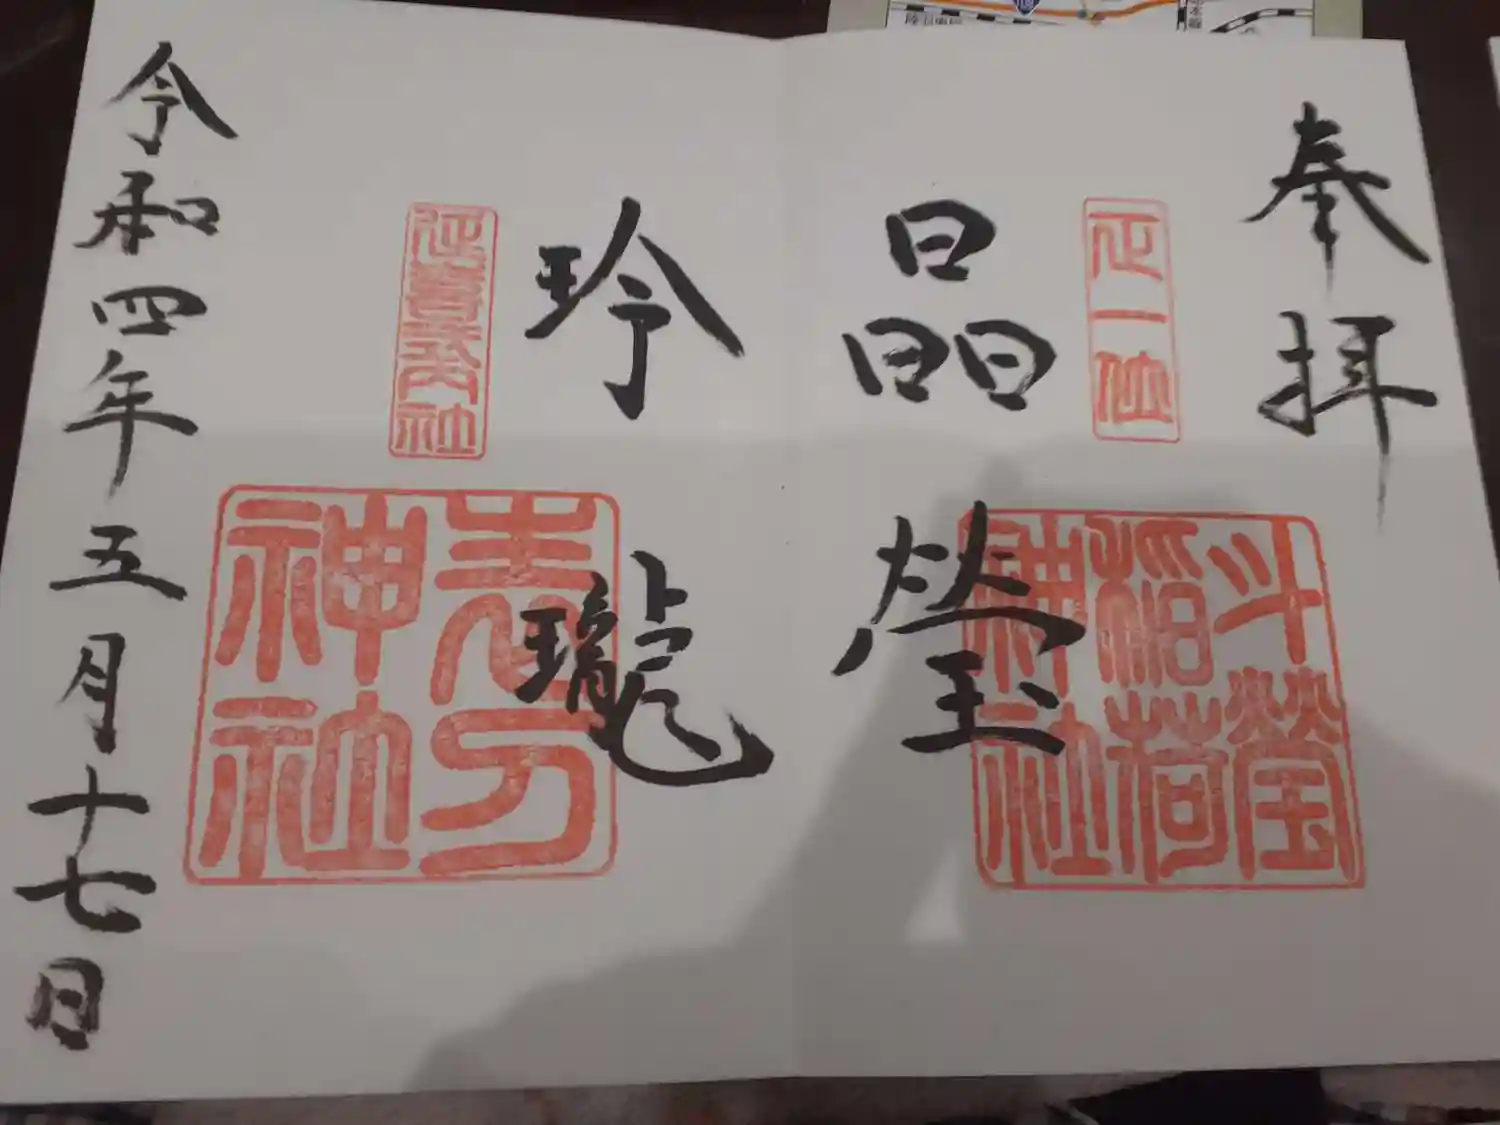 奉拝
正一位
晶瑩
斗瑩稲荷神社
玲瓏
延喜式内社
志和神社
令和四年五月十七日